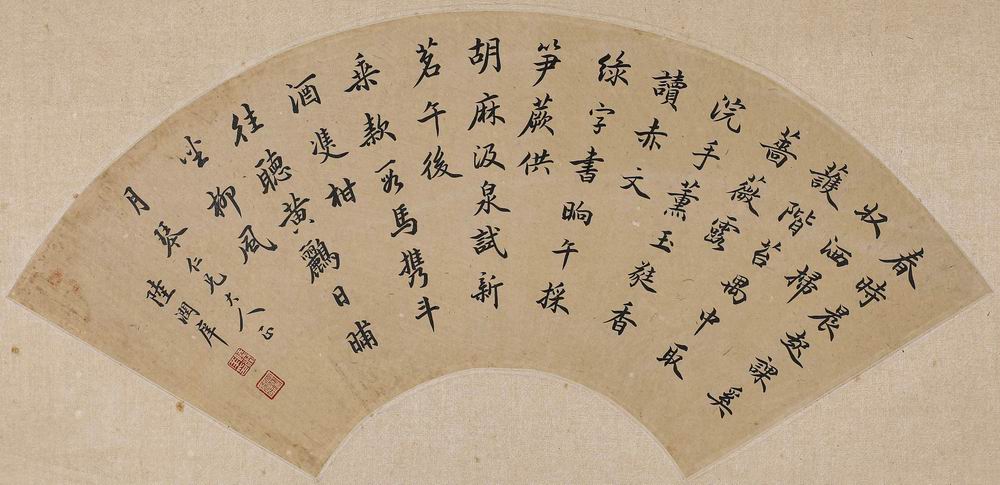 春時晨起課奚
奴洒掃
護階苔禺中取
薔薇露
浣手薰玉蕤香
讀赤文
綠字書晌午採
笋蕨供
胡麻汲泉試新
茗午後
乘款段馬攜斗
酒雙柑
往聽黃鸝日晡
坐柳風
月琴仁兄大人正
陸潤庠